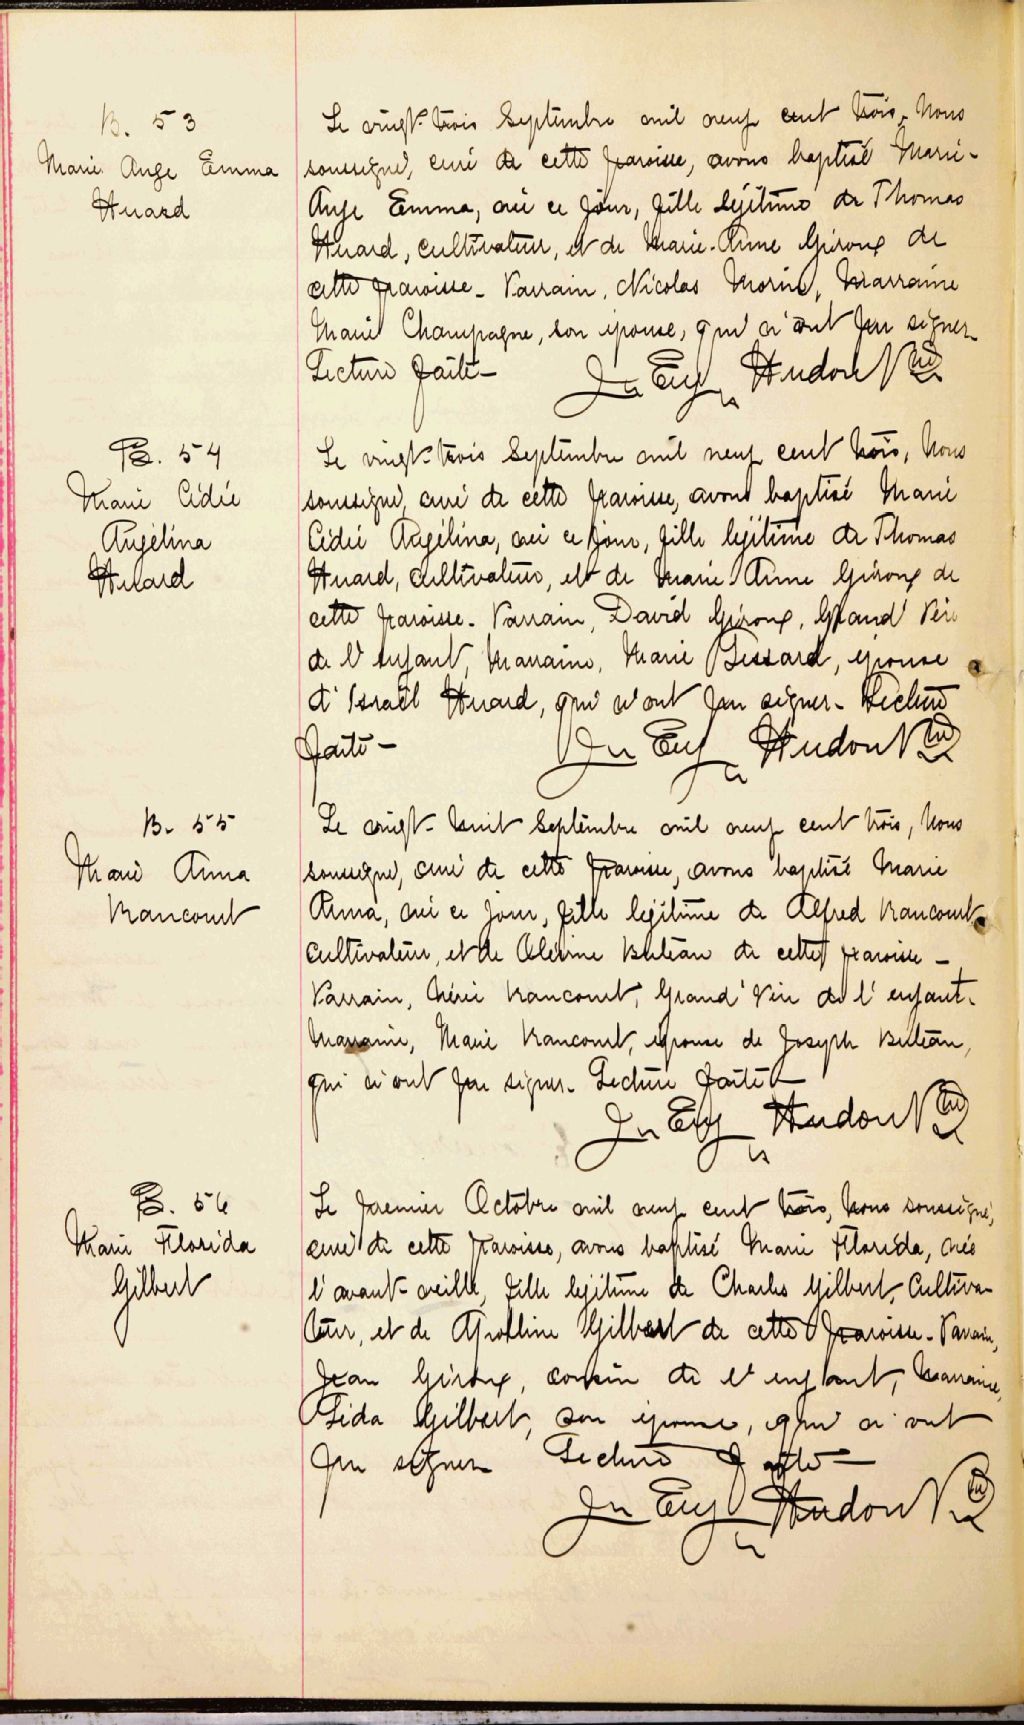 B. 53
Marie Ange Emma
Huard
Le vingt-trois Septembre mil neuf cent trois, Nous
soussigné, curé de cette paroisse, avons baptisé Marie-
Ange Emma, née ce jour, fille légitime de Thomas
Huard, cultivateur, et de Marie-Anne Giroux de
cette paroisse - Parrain, Nicolas Morin, Marraine
Marie Champagne, son épouse, qui n'ont pu signer -
Lecture faite - Jn Eug Hudon Ptre
B. 54
Marie Cédié
Angélina
Huard
Le vingt-trois Septembre mil neuf cent trois, Nous
soussigné, curé de cette paroisse, avons baptisé Marie
Cédié Angélina, née ce jour, fille légitime de Thomas
Huard, cultivateur, et de Marie Anne Giroux de
cette paroisse - Parrain, David Giroux, Grand'Père
de l'enfant, Marraine, Marie, épouse
d'Israël Huard, qui n'ont pu signer - Lecture
faite - Jn Eug Hudon Ptre
B. 55
Marie Anna
Rancourt
Le vingt-huit Septembre mil neuf cent trois, Nous
soussigné, curé de cette paroisse, avons baptisé Marie
Anna, née ce jour, fille légitime de Alfred Rancourt
cultivateur, et de Buteau de cette paroisse -
Parrain, Chéri Rancourt, Grand'Père de l'enfant -
Marraine, Marie Rancourt, épouse de Joseph Buteau,
qui n'ont pu signer - Lecture faite -
Jn Eug Hudon Ptre
B. 56
Marie Florida
Gilbert
Le premier Octobre mil neuf cent trois, Nous soussigné,
curé de cette paroisse, avons baptisé Marie Florida, née
l'avant-veille, fille légitime de Charles Gilbert, Cultiva-
teur, et de Apolline Gilbert de cette paroisse - Parrain,
Jean Giroux, cousin de l'enfant, Marraine,
Lida Gilbert, son épouse, qui n'ont
pu signer Lecture faite -
Jn Eug Hudon Ptre